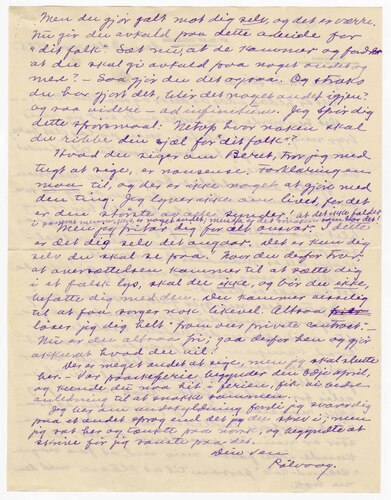 Men du gjør galt mot dig selv, og det er værre.
Nu gir du avkald paa dette arbeide for
"dit folk". Sæt nu, at de kommer og fordrer
at du skal gi avkald paa noget andet og
med? – Saa gjør du det ogsaa. Og straks
du har gjort det, blir det noget andet igjen?
og saa videre – ad infinitum. Jeg spør dig
dette spørsmaal: Netop hvor naken skal
du ribbe din sjæl for "dit folk"?
Hvad du siger om Beret, tror jeg med
tugt at sige, er nonsense. Forklaring en
maa til, og der er ikke noget at gjøre med
den ting. Jeg om livet, for det
er den største av alle synder,
Men jeg fritar dig for alt ansvar. I dette
er det dig selv det angaar. Det er kun dig
selv du skal se paa. Tror du derfor at
at oversættelsen kommer til at sætte dig
i et falsk lys, skal du ikke, og bør du ikke,
befatte dig med den. Den kommer
til at faa sorger nok likevel. Altsaa
løser jeg dig helt fra vor private contract: –
Nu er du altsaa fri; gaa derfor hen og gjør
akkurat hvad du vil.
Der er meget andet at sige, men jeg skal slutte
her. Vor paaskeferie begynder den april,
og kunde du naa hit i ferien, fik vi bedre
anledning til at snakke sammen.
Jeg ber om undskyldning fordi jeg svarer dig
paa et andet sprog end det du skrev i, men
jeg sat her og tænkte paa norsk, og begyndte at
skrive før jeg tænkte paa det.
Din ven
Rölvaag.